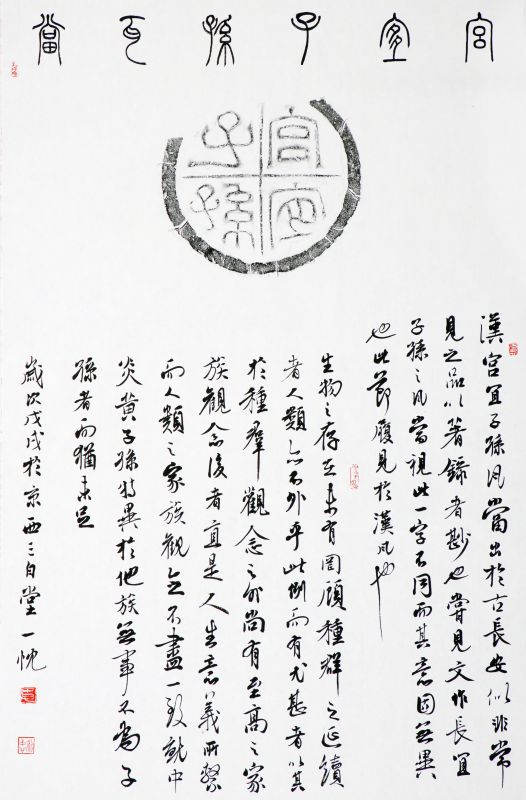 宮宜子孫瓦當
宮宜
子孫
漢宮宜子孫瓦當出於古長安似非常
見之品以著錄者尠也嘗見文作長宜
子孫之瓦當視此一字不同而其意固無異
也此節屢見於漢瓦也
生物之存在未有罔顧種群之延續
者人類亦不外乎此例而有尤甚者以其
於種群觀念之外尚有至高之家
族觀念後者直是人生意義所繫
而人類之家族觀念不盡一致就中
炎黃子孫特異於他族無事不為子
孫者而猶未足
歲次戊戌於京西三自堂一忱